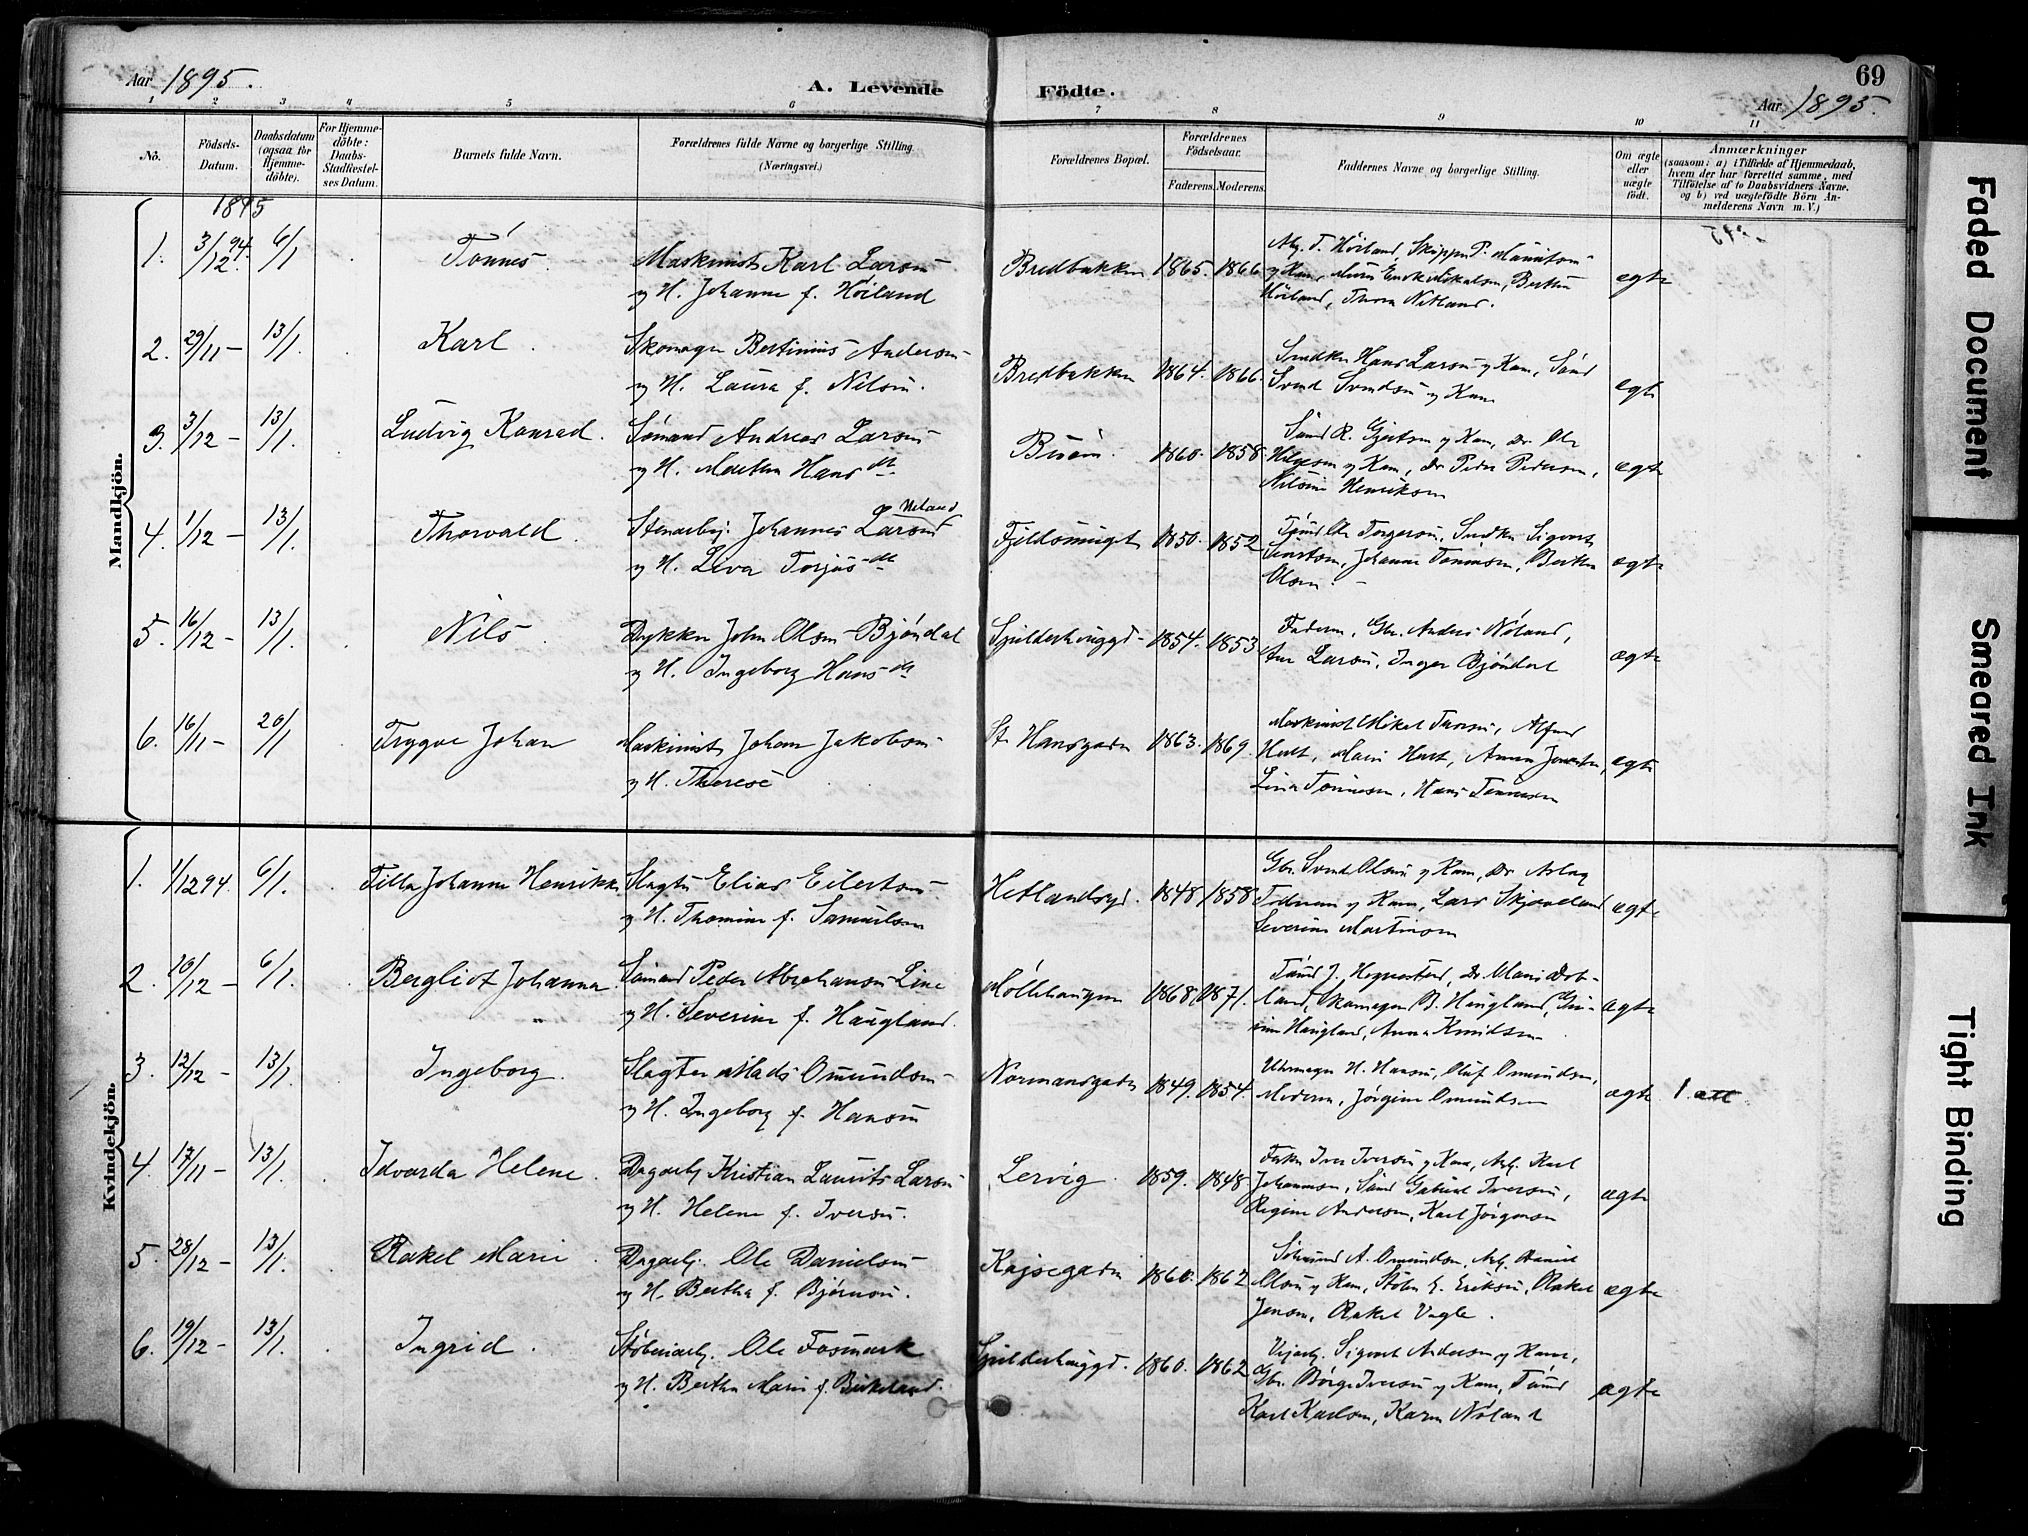 Aar 1895.
A. Levende Födte.
69
Aar 1895.
1 2 3 4 5 6 7 8 9 10 11
No.
Födsels-Datum.
Daabsdatum (ogsaa for Hjemmedöbte).
For Hjemmedöbte: Daabs-Stadfæstelses Datum.
Barnets fulde Navn.
Forældrenes fulde Navne og borgerlige Stilling. (Næringsvei.)
Forældrenes Bopæl.
Forældrenes Födselsaar.
Faderens. Moderens.
Faddernes Navne og borgerlige Stilling.
Om ægte eller uægte födt.
Anmærkninger
(saasom: a) i Tilfælde af Hjemmedaab,
hvem der har forrettet samme, med
Tilföielse af to Daabsvidners Navne.
og b) ved uægtefödte Börn An-
melderens Navn m. V.)
Mandkjön.
1895
1. 3/12 94. 6/1 Tönnes. Maskinist Karl Larsen
y H. Johanne f. Höiland
Bredbakken 1865. 1866. Arb. T. Höiland, Skipper P. Mauritsen
Höiland, Thora Netland.
ægte
2. 29/11 – 13/1. Karl. Skomager Bertinius Andersen
y H. Laura f. Nilsen.
Bredbakken 1864. 1866. Snedker Hans Larsen y Kone, Sömd
Svend Svendsen y Kone
ægte
3. 3/12 – 13/1. Ludvig Konrad. Sömand Andreas Larsen
y H. Marthea Hans dt
1860. 1858. Sömd R. Gjertsen y Kone, Do Ole
Helgesen y Kone, Do Peder Pedersen,
Henriksen
ægte
4. 1/12 – 13/1. Thorvald. Stenarbej. Johannes Larsen
y H. Leva Torjus dt
1850. 1852 Tömd Ole Torgersen, Snedker Sigvart
Johanne Tönnesen, Berthe
Olsen.
ægte
5. 16/12 – 13/1. Nils. Dykker John Olsen Bjöndal
y H. Ingeborg Hans dt
Spilderhauggd. 1854. 1853 Faderen, Gbr. Anders Nöland,
Larsen, Inger Bjöndal
ægte
6. 16/11 – 20/1 Trygve Johan Maskinist Johan Jakobsen
y H. Therese
St. Hansgaden 1863. 1869. Maskinist Mikel Alfred
Lina Tönnesen, Hans Tönnesen
ægte
Kvindekjön.
1. 1/12 94. 6/1. Tilla Johanne Henrikke Slagter Elias Eilertsen
y H. Thomine f. Samuelsen
Hetlandsgd. 1848 1858 Gbr. Svend Olsen y Kone, Do Aslag
Pedersen y Kone, Lars Skjæveland
Severine Martinsen
ægte
2. 10/12 – 6/1. Bergliot Johanna Sömand Peder Abrahamsen Line
„ y H. Severine f. Haugland.
Möllehaugen 1868 1871.
land, Skomager B. Haugland,
Haugland, Anna Knudsen
ægte
3. 12/12 – 13/1. Ingeborg. Slagter Mads Omundsen
y H. Ingeborg f. Hansen
Normansgaden 1849. 1854. Uhrmager H. Hansen, Oluf Omundsen,
Moderen, Jörgine Omundsen
ægte
4. 17/11 – 13/1. Edvarda Helene. Dagarbj Kristian Laurits Larsen
y H. Helene f. Iversen.
Lervig. 1859. 1848. Iver Iversen y Kone, Arb. Karl
Johannesen, Sömd Gabriel Iversen,
Regine Andersen, Karl Jörgensen
ægte
5. 28/12 – 13/1. Rakel Marie. Dagarbj. Ole Danielsen
y H. Bertha f. Björnsen.
Kajsegaden 1860. 1862 Sömand A. Omundsen, Arb. Daniel
Olsen y Kone, Stöber E. Eriksen, Rakel
Jensen, Rakel Vagle.
ægte
6. 19/12 – 13/1. Ingrid. Stöberiarbj. Ole Fosmark
y H. Berthe Marie f. Birkeland.
Spilderhauggd. 1860. 1862 Vejarbj. Sigvart Andersen y Kone,
Gbr. Börge Iversen y Kone, Tömd
Karl Karlsen, Karen Nöland
ægte
Faded Document
Smeared Ink
Tight Binding